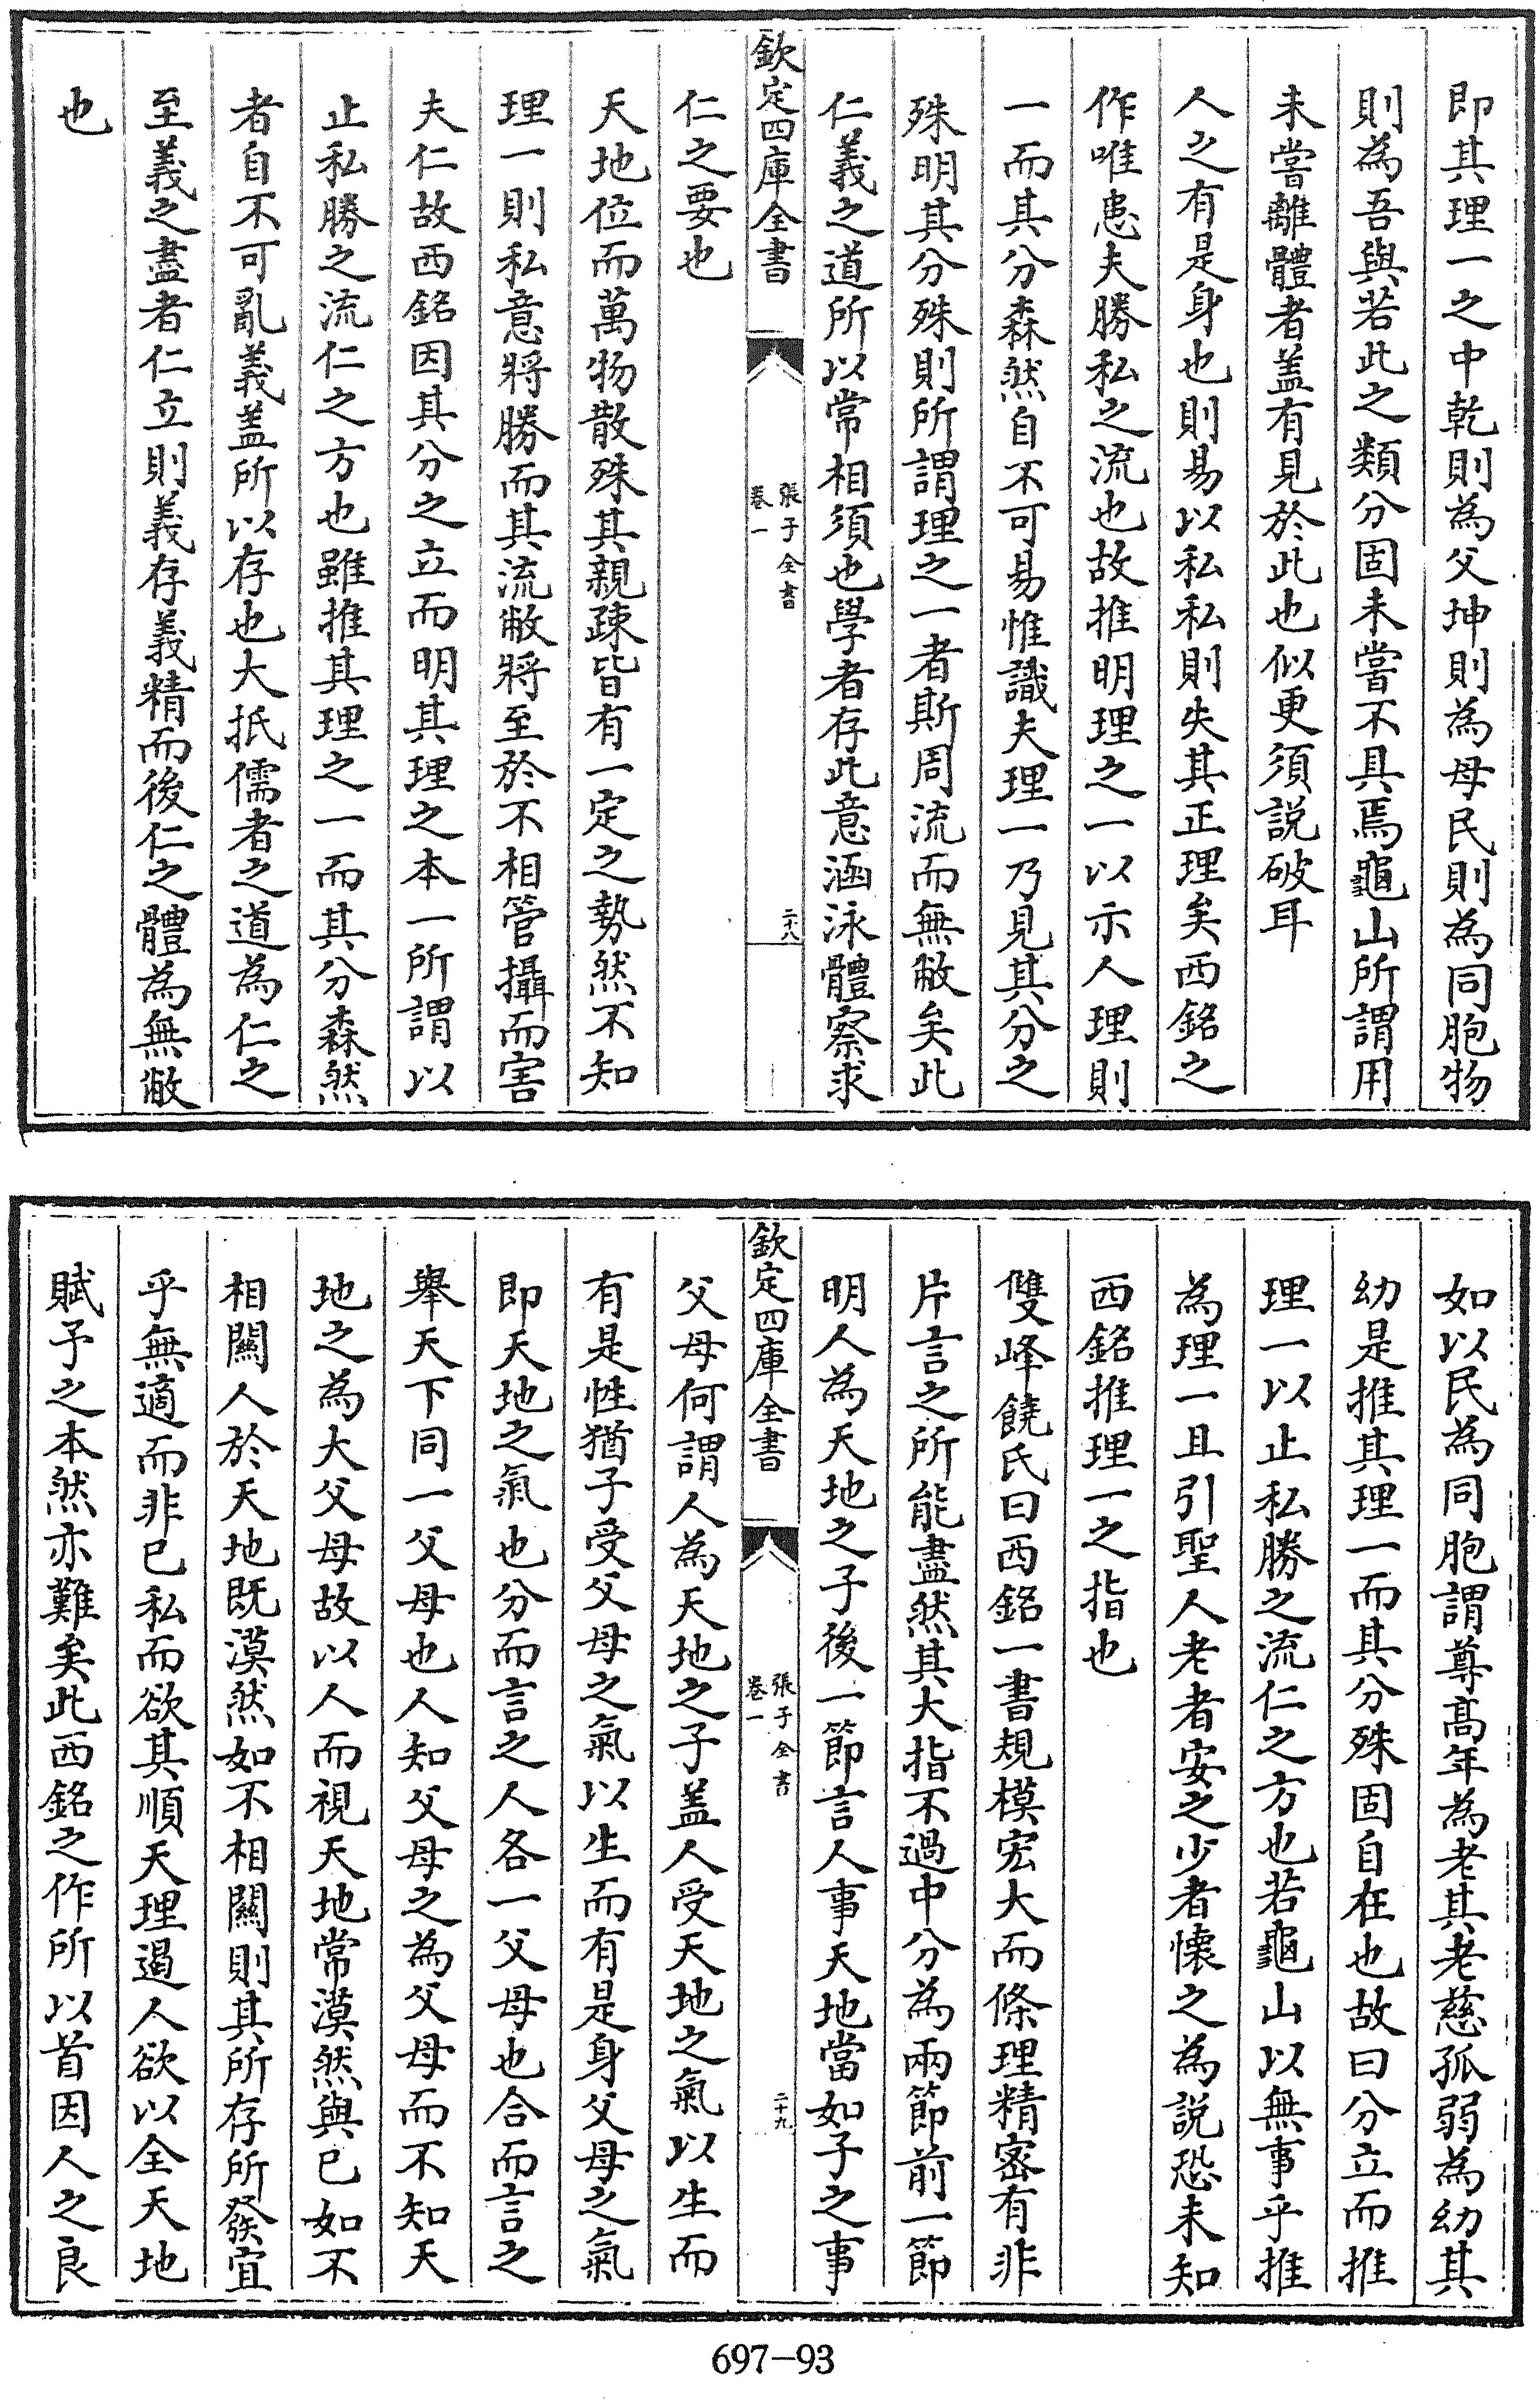 即其理一之中乾則為父坤則為母民則為同胞物
則為吾與若此之類分固未嘗不具焉龜山所謂用
未嘗離體者盖有見於此也似更須説破耳
人之有是身也則易以私私則失其正理矣西銘之
作唯患夫勝私之流也故推明理之一以示人理則
一而其分森然自不可易惟識夫理一乃見其分之
殊明其分殊則所謂理之一者斯周流而無敝矣此
仁義之道所以常相須也學者存此意涵泳體察求
欽定四庫全書
張子全書
卷一
二十八
仁之要也
天地位而萬物散殊其親疎皆有一定之勢然不知
理一則私意將勝而其流敝將至於不相管攝而害
夫仁故西銘因其分之立而明其理之本一所謂以
止私勝之流仁之方也雖推其理之一而其分森然
者自不可亂義盖所以存也大抵儒者之道為仁之
至義之盡者仁立則義存義精而後仁之體為無敝
也
如以民為同胞謂尊髙年為老其老慈孤弱為幼其
幼是推其理一而其分殊固自在也故曰分立而推
理一以止私勝之流仁之方也若龜山以無事乎推
為理一且引聖人老者安之少者懷之為説恐未知
西銘推理一之指也
雙峰饒氏曰西銘一書規模宏大而條理精密有非
片言之所能盡然其大指不過中分為兩節前一節
明人為天地之子後一節言人事天地當如子之事
欽定四庫全書
張子全書
卷一
二十九
父母何謂人為天地之子盖人受天地之氣以生而
有是性猶子受父母之氣以生而有是身父母之氣
即天地之氣也分而言之人各一父母也合而言之
舉天下同一父母也人知父母之為父母而不知天
地之為大父母故以人而視天地常漠然與已如不
相闗人於天地既漠然如不相闗則其所存所發宜
乎無適而非已私而欲其順天理遏人欲以全天地
賦予之本然亦難矣此西銘之作所以首因人之良
697-93